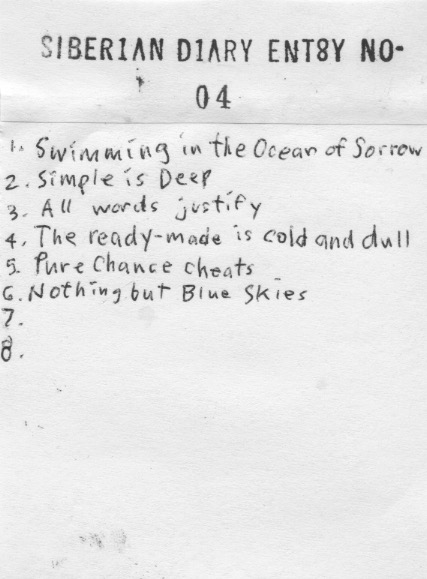 SIBER1AN D1ARY ENT8Y NO-
04
1. Swimming in the Ocean of Sorrow
2. Simple is Deep
3. All words justify
4. The ready-made is cold and dull
5. Pure Chance cheats
6. Nothing but Blue Skies
7.
8.